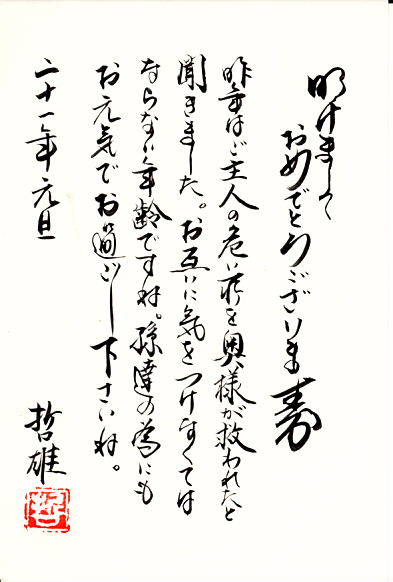 明けまして
おめでとうございま寿
昨年はご主人の危い所を奥様が救われたと
聞きました。お互いに気をつけなくては
ならない年齢ですね。孫達の為にも
お元気でお過ごし下さいね。
二十一年元旦
哲雄
哲